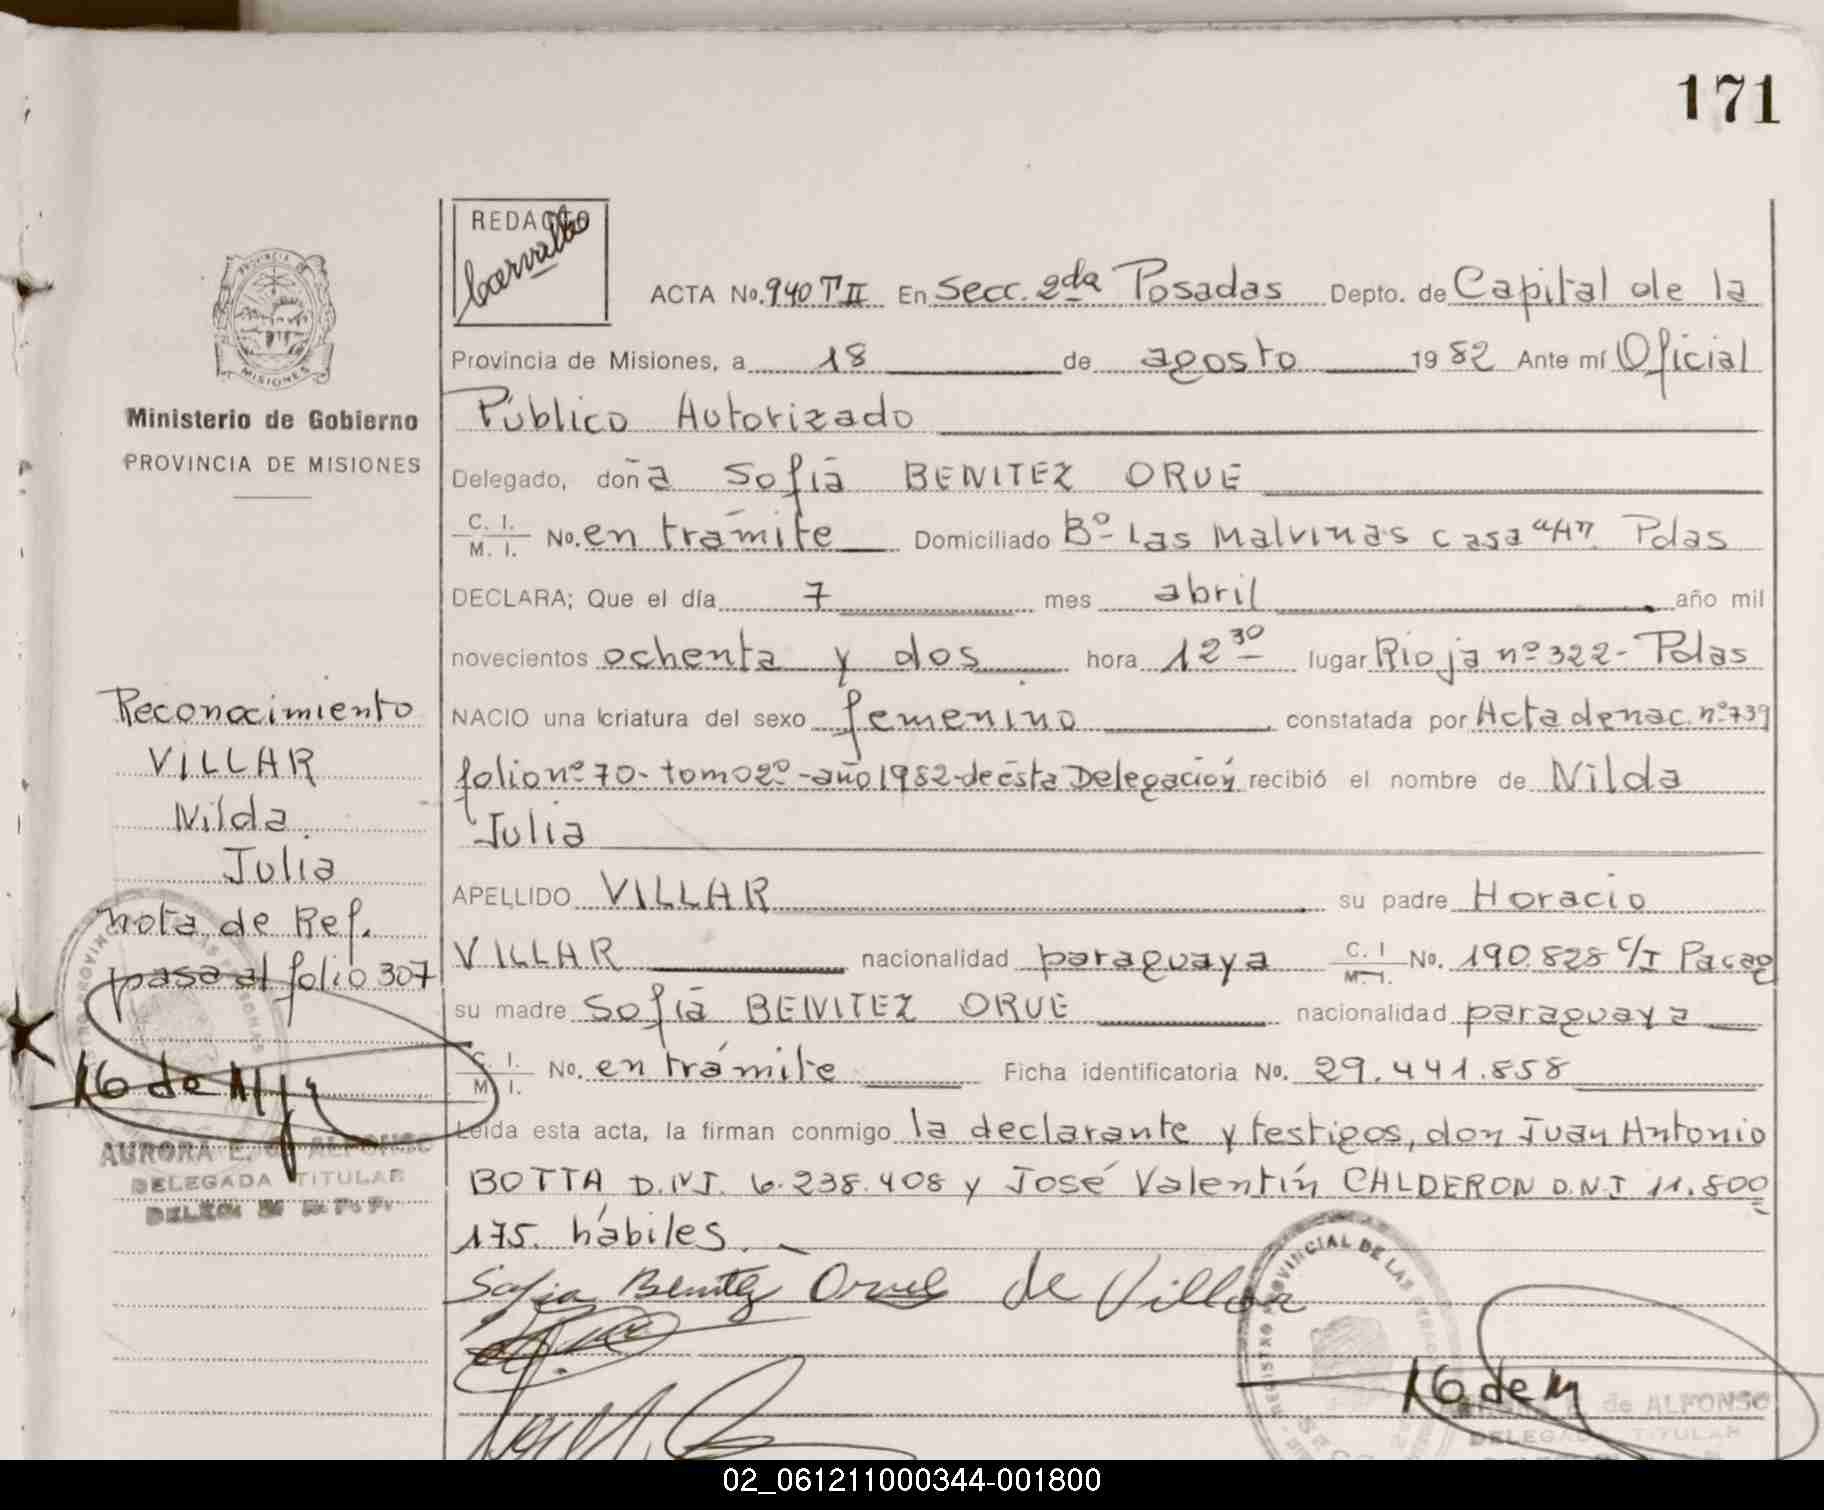 171
REDACTO
Carvallo
ACTA No. 940 T II En Secc. 2da Posadas Depto. de Capital de la
Provincia de Misiones, a 18 de agosto 1982 Ante mí Oficial
Público Autorizado
Delegado, doña Sofía BENITEZ ORUE
C. I. M. I. No. en trámite Domiciliado Bº Las Malvinas casa "4" Pdas
DECLARA; Que el día 7 mes abril año mil
novecientos ochenta y dos hora 12 30 lugar Rioja nº 322 - Pdas
NACIO una criatura del sexo femenino constatada por Acta de nac. nº 739
folio nº 70 - tomo 2º - año 1982 - de ésta Delegación recibió el nombre de Nilda
Julia
APELLIDO VILLAR su padre Horacio
VILLAR nacionalidad paraguaya C. I. M. I. No. 190.828 C/I
su madre Sofía BENITEZ ORUE nacionalidad paraguaya
C. I. M. I. No. en trámite Ficha identificatoria No. 29.441.858
Leída esta acta, la firman conmigo la declarante y testigos, don Juan Antonio
BOTTA D.N.I. 6.238.408 y José Valentín CALDERON D.N.I 11.800
175. hábiles.
Sofia Benitez Orue de Villar
PROVINCIA DE
MISIONES
Ministerio de Gobierno
PROVINCIA DE MISIONES
Reconocimiento
VILLAR
Nilda
Julia
nota de Ref.
pasa al folio 307
AURORA E. G. de ALFONSO
DELEGADA TITULAR
REGISTRO PROVINCIAL DE LAS PERSONAS
de ALFONSO
DELEGADA TITULAR
02_061211000344-001800